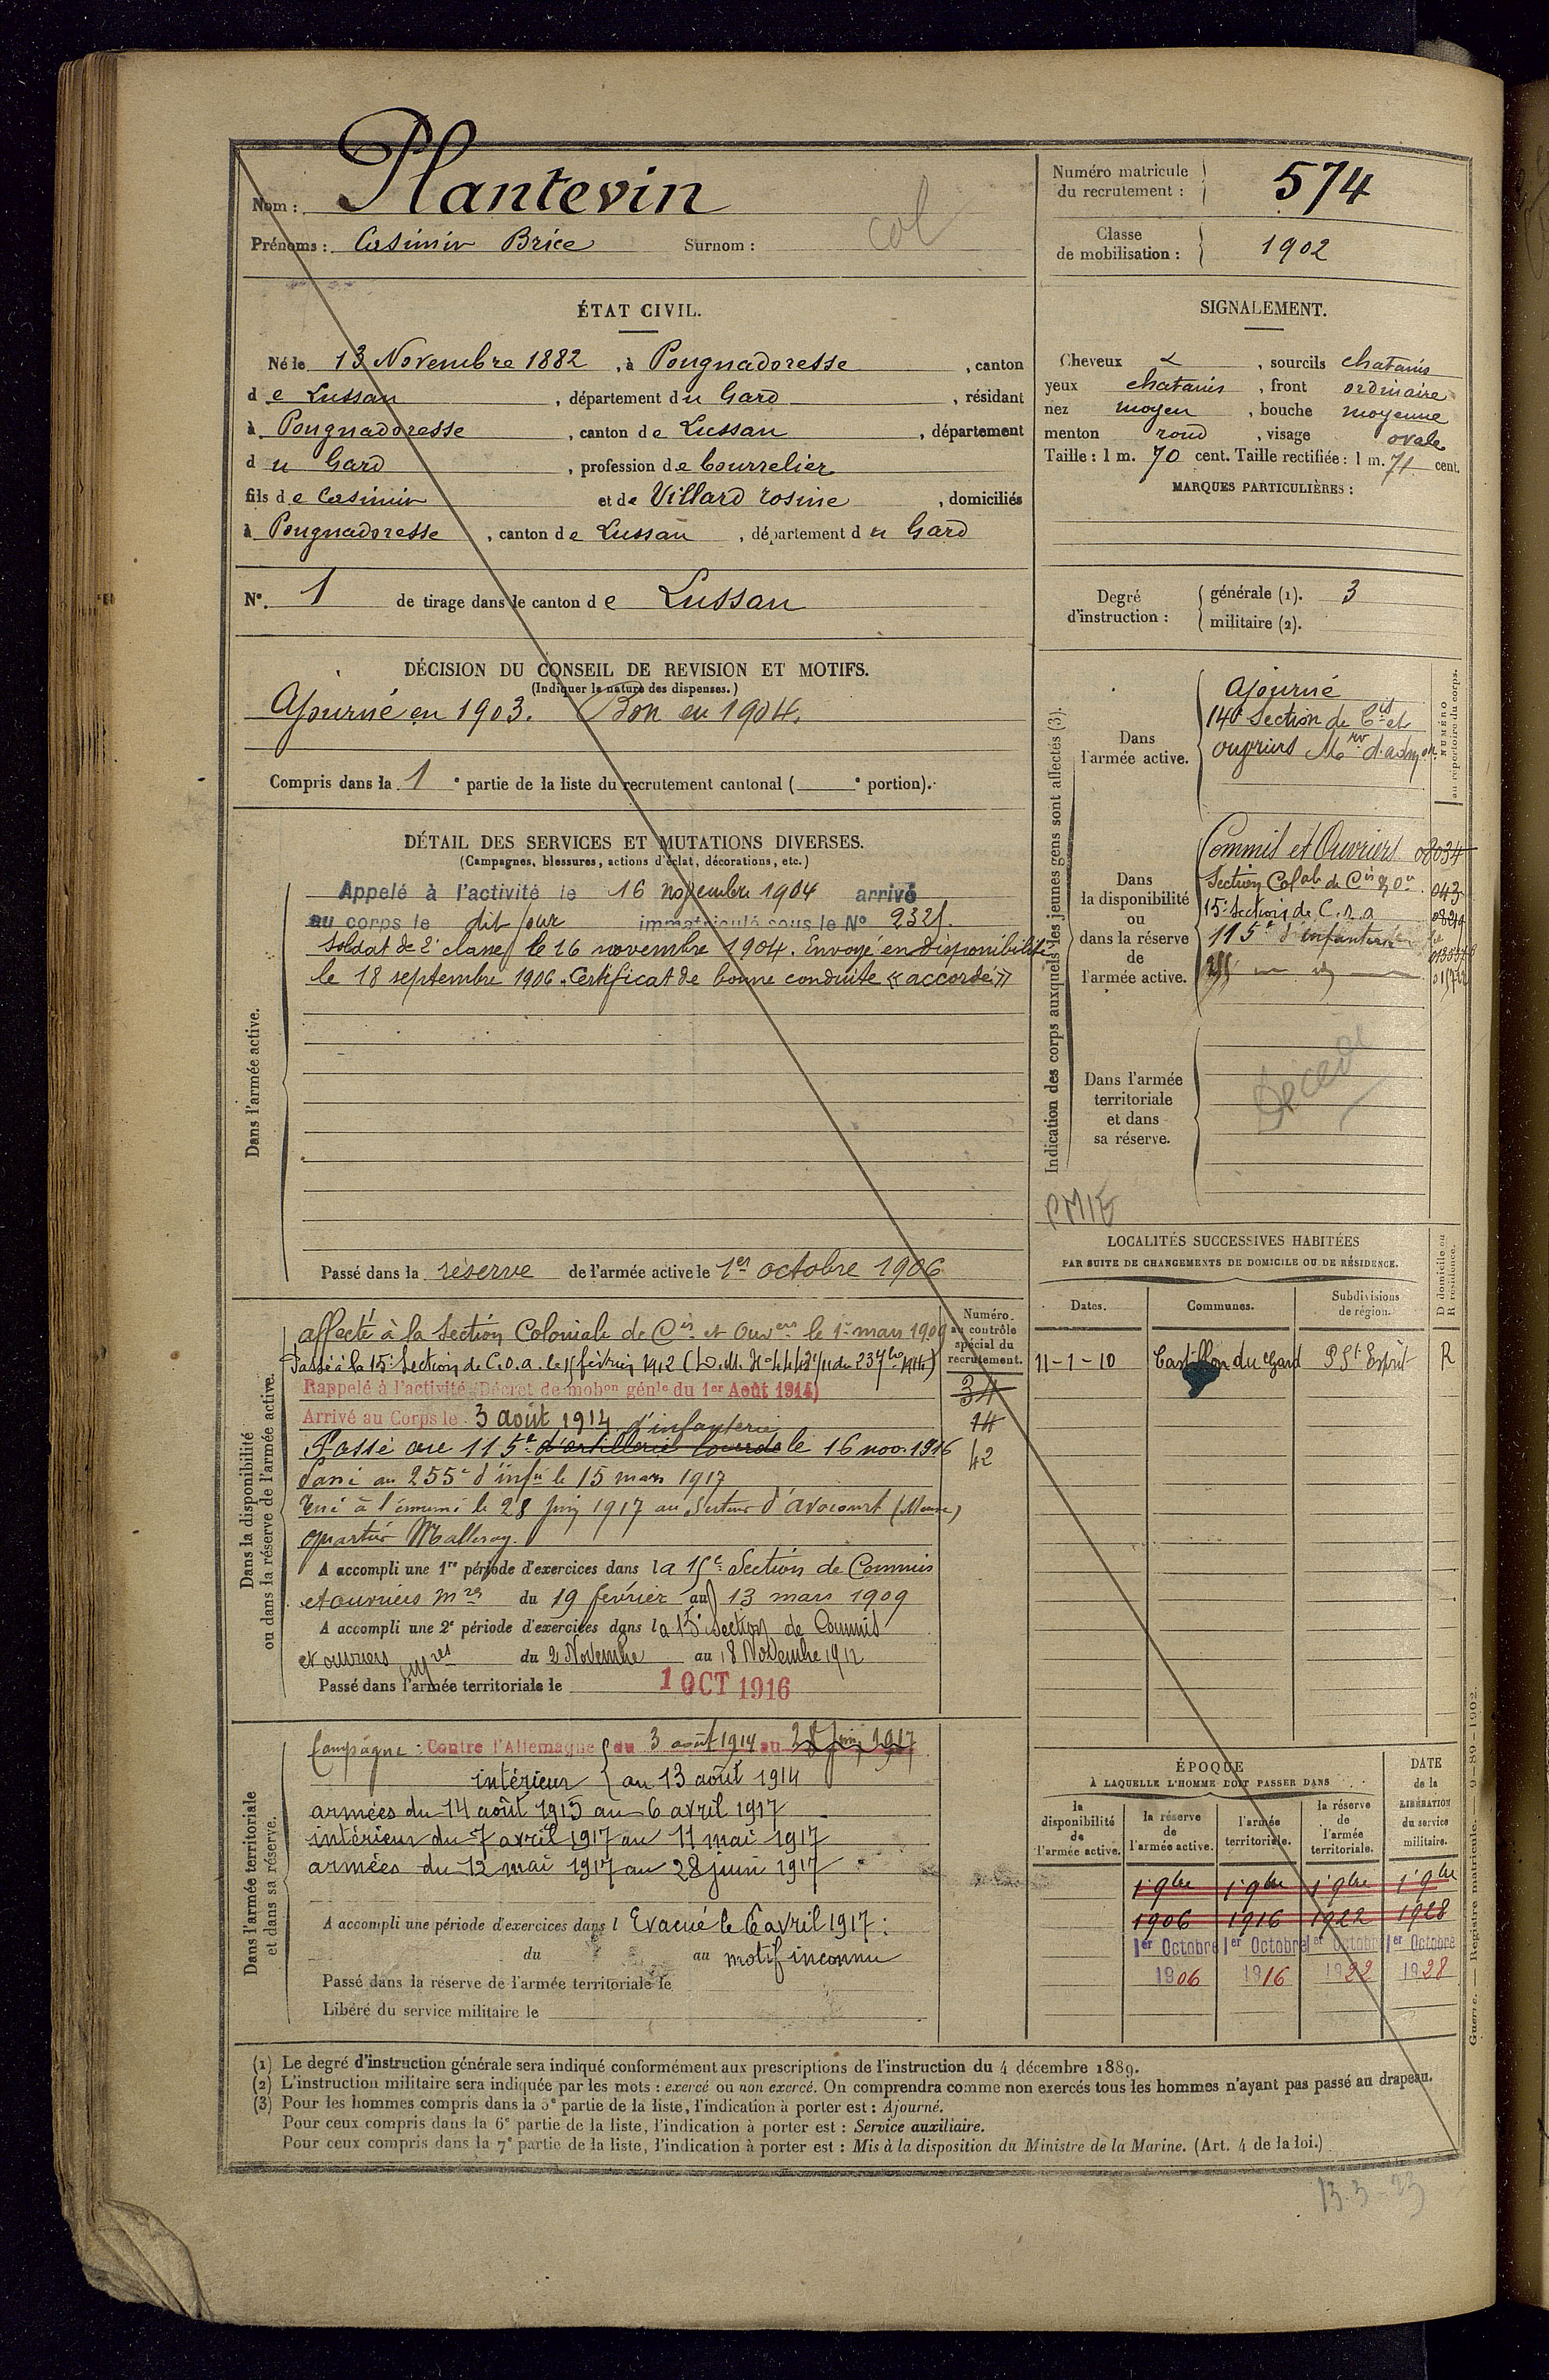 Nom : Plantevin
Prénoms : Casimir Brice Surnom : col
Numéro matricule du recrutement : 574
Classe de mobilisation : 1902
ÉTAT CIVIL.
Né le 13 Novembre 1882, à Pougnadoresse, canton
de Lussan, département du Gard, résidant
à Pougnadoresse, canton de Lussan, département
du Gard, profession de bourrelier
fils de Casimir et de Villard rosine, domiciliés
à Pougnadoresse, canton de Lussan, département du Gard
N°. 1 de tirage dans le canton de Lussan
SIGNALEMENT.
Cheveux &, sourcils chatains
yeux chatains, front ordinaire
nez moyen, bouche moyenne
menton rond, visage ovale
Taille : 1 m. 70 cent. Taille rectifiée : 1 m. 71 cent.
MARQUES PARTICULIÈRES :
Degré d'instruction : générale (1). 3
militaire (2).
DÉCISION DU CONSEIL DE REVISION ET MOTIFS.
(Indiquer la nature des dispenses.)
Ajourné en 1903. Bon en 1904.
Compris dans la 1e partie de la liste du recrutement cantonal (e portion).
DÉTAIL DES SERVICES ET MUTATIONS DIVERSES.
(Campagnes, blessures, actions d'éclat, décorations, etc.)
Dans l'armée active.
Appelé à l'activité le 16 novembre 1904 arrivé
au corps le dit jour immatriculé sous le N° 2321.
Soldat de 2e classe le 16 novembre 1904. Envoyé en disponibilité
le 18 septembre 1906. Certificat de bonne conduite «accordé»
Passé dans la réserve de l'armée active le 1er octobre 1906
Indication des corps auxquels les jeunes gens sont affectés (3).
NUMÉRO au répertoire du corps.
Dans l'armée active.
Ajourné
14e Section de Cis et
ouvriers Mres d'admon
Dans la disponibilité ou dans la réserve de l'armée active.
Commis et Ouvriers 08034
Section Colale de Cis & Ou 043
15e Section de C.o.a
115e d'infanterie
Dans l'armée territoriale et dans sa réserve.
Décédé
PMIE
Dans la disponibilité ou dans la réserve de l'armée active.
Numéro au contrôle spécial du recrutement.
34
14
42
affecté à la Section Coloniale de Cis et Ouvers le 1er mars 1909
Passé à la 15e Section de C.o.a. le 15 février 1912
Rappelé à l'activité (Décret de mobon génle du 1er Août 1914)
Arrivé au Corps le 3 août 1914
d'infanterie
Passé au 115e d'artillerie lourde le 16 nov. 1916
Passé au 255e d'infie le 15 mars 1917
Tué à l'ennemi le 28 juin 1917 au Secteur d'Avocourt (Meuse)
quartier Malleray.
A accompli une 1re période d'exercices dans la 15e Section de Commis
et ouvriers mres du 19 février au 13 mars 1909
A accompli une 2e période d'exercices dans la 15e Section de Commis
et ouvriers mres du 2 Novembre au 18 Novembre 1912
Passé dans l'armée territoriale le 1 OCT 1916
LOCALITÉS SUCCESSIVES HABITÉES
PAR SUITE DE CHANGEMENTS DE DOMICILE OU DE RÉSIDENCE.
Dates. Communes. Subdivisions de région. D domicile ou R résidence.
11-1-10 Castillon du Gard P St Esprit R
Dans l'armée territoriale et dans sa réserve.
Campagne : Contre l'Allemagne du 3 août 1914 au 28 juin 1917
intérieur au 13 août 1914
armées du 14 août 1915 au 6 avril 1917
intérieur du 7 avril 1917 au 11 mai 1917
armées du 12 mai 1917 au 28 juin 1917
A accompli une période d'exercices dans l Evacué le 6 avril 1917 :
du au motif inconnu
Passé dans la réserve de l'armée territoriale le
Libéré du service militaire le
ÉPOQUE
À LAQUELLE L'HOMME DOIT PASSER DANS
la disponibilité de l'armée active. la réserve de l'armée active. l'armée territoriale. la réserve de l'armée territoriale. DATE de la LIBÉRATION du service militaire.
1er 9bre 1er 9bre 1er 9bre 1er 9bre
1906 1916 1922 1928
1er Octobre 1er Octobre 1er Octobre 1er Octobre
1906 1916 1922 1928
(1) Le degré d'instruction générale sera indiqué conformément aux prescriptions de l'instruction du 4 décembre 1889.
(2) L'instruction militaire sera indiquée par les mots : exercé ou non exercé. On comprendra comme non exercés tous les hommes n'ayant pas passé au drapeau.
(3) Pour les hommes compris dans la 5e partie de la liste, l'indication à porter est : Ajourné.
Pour ceux compris dans la 6e partie de la liste, l'indication à porter est : Service auxiliaire.
Pour ceux compris dans la 7e partie de la liste, l'indication à porter est : Mis à la disposition du Ministre de la Marine. (Art. 4 de la loi.)
Guerre. — Registre matricule. — 9-89-1902.
13.3-23